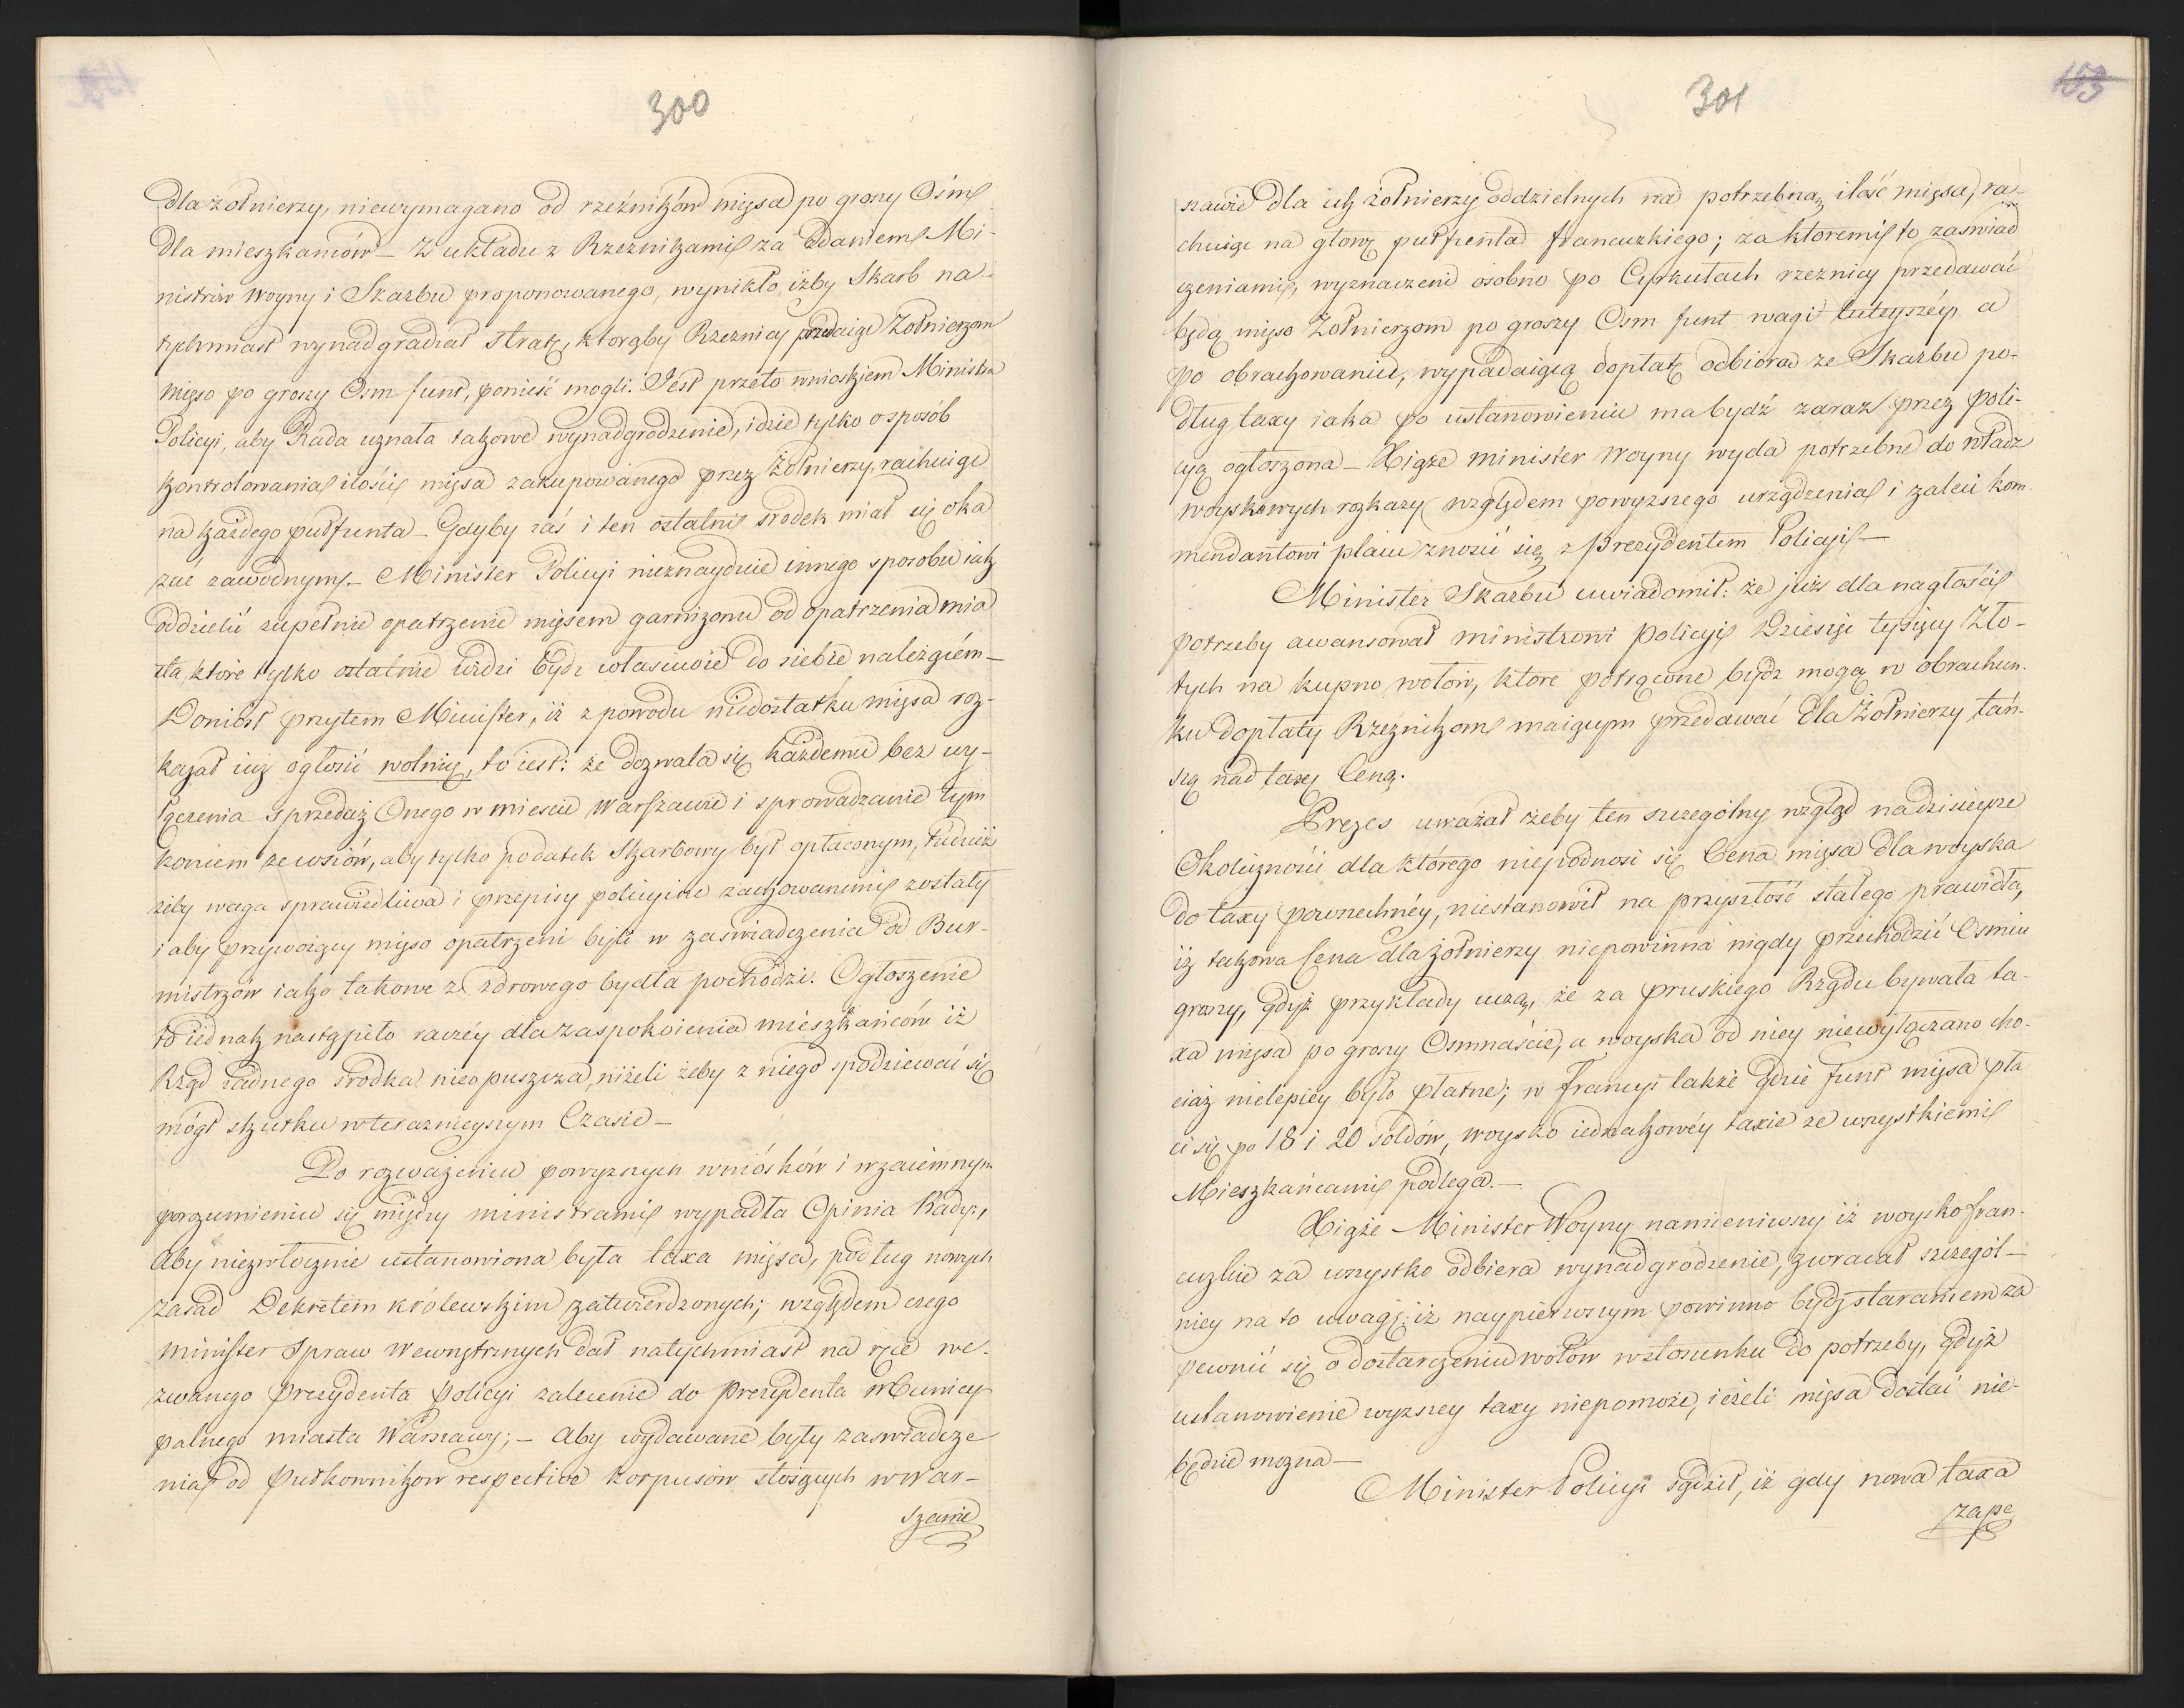 300
dla żołnierzy, niewymagano od rzeźników mięsa po groszy Ośm
dla mieszkańców – Z układu z Rzeźnikami za zdaniem Mi-
nistrów Woyny i Skarbu proponowanego, wynikło, iżby Skarb na-
tychmiast wynadgradzał stratę, którąby Rzeźnicy przedaiąc Żołnierzom
mięso po groszy Ośm funt, ponieść mogli. Jest przeto wnioskiem Ministra
Policyi, aby Rada uznała takowe wynadgrodzenie, idzie tylko o sposób
kontrolowania ilości mięsa zakupowanego przez Żołnierzy, rachuiąc
na każdego pułfunta – Gdyby zaś i ten ostatni srodek miał się oka
zać zawodnym – Minister Policyi nieznayduie innego sposobu iak
oddzielić zupełnie opatrzenie mięsem garnizonu od opatrzenia mia
sta, które tylko ostatnie sądzi bydz właściwie do siebie należącém –
Doniósł przytem Minister, iż z powodu niedostatku mięsa roz-
kazał iuż ogłosić wolnicę, to iest: że dozwala się każdemu bez wy-
łączenia sprzedaż Onego w miescie Warszawie i sprowadzanie tym
koniem ze wsiów, aby tylko podatek Skarbowy był opłaconym, tudzież
żeby waga sprawiedliwa i przepisy policyine zachowanemi zostały
i aby przywożący mięso opatrzeni byli w zaswiadczenia od Bur-
mistrzów iako takowe z zdrowego bydła pochodzi. Ogłoszenie
to iednak nastąpiło raczéy dla zaspokoienia mieszkańców iż
Rząd żadnego srodka nieopuszcza, niżeli żeby z niego spodziewać się
mógł skutku w teraznieyszym Czasie –
Po rozważeniu powyzszych wniósków i wzaiemnym
porozumieniu się między ministrami wypadła Opinia Rady,
Aby niezwłocznie ustanowiona była taxa mięsa, podług nowych
zasad Dekretem królewskim zatwierdzonych; względem czego
minister Spraw Wewnętrznych dał natychmiast na ręce we-
zwanego Prezydenta Policyi zalecenie do Prezydenta Municy
palnego miasta Warszawy; – Aby wydawane były zaswiadcze
nia od Pułkowników respective korpusów stoiących w War-
szawie
301
153
szawie dla ich żołnierzy oddzielnych na potrzebną ilość mięsa, ra-
chuiąc na głowę pułfunta francuzkiego; za któremi to zaswiad
czeniami, wyznaczeni osobno po Cyrkułach rzeznicy przedawać
będą mięso Żołnierzom po groszy Ośm funt wagi tuteyszéy, a
po obrachowaniu, wypadaiącą dopłatę odbiorą ze Skarbu po-
dług taxy iaka po ustanowieniu ma bydź zaraz przez poli-
cyą ogłoszona – Xiąże minister Woyny wyda potrzebne do władz
woyskowych rozkazy względem powyzszego urządzenia i zaleci kom
mendantowi placu znosić się z Prezydentem Policyi –
Minister Skarbu uwiadomił: że już dla nagłości
potrzeby awansował ministrowi Policyi Dziesięć tysięcy Zło-
tych na kupno wołów, które potrącone bydz mogą w obrachun-
ku dopłaty Rzeźnikom maiącym przedawać dla Żołnierzy tań-
szą nad taxę Ceną.
Prezes uważał żeby ten szczególny wzgląd na dzisieysze
Okoliczności dla którego niepodnosi się Cena mięsa dla woyska
do taxy powszechnéy, niestanowił na przyszłość stałego prawidła,
iż takowa Cena dla żołnierzy niepowinna nigdy przechodzić Osmiu
groszy, gdyż przykłady uczą, że za pruskiego Rządu bywała ta-
xa mięsa po groszy Ośmnaście, a woyska od niey niewyłączano cho-
ciaż nielepiey było płatne; w Francyi także gdzie funt mięsa pła
ci się po 18 i 20 soldów, woysko iednakowéy taxie ze wszystkiemi
Mieszkańcami podlega. –
Xiąże Minister Woyny namieniwszy iż woysko fran-
cuzkie za wszystko odbiera wynadgrodzenie, zwracał szczegól-
niey na to uwagę: iż naypierwszym powinno bydź staraniem za
pewnić się o dostarczeniu wołów w stosunku do potrzeby, gdyż
ustanowienie wyzszey taxy niepomoże, ieżeli mięsa dostać nie-
będzie mozna –
Minister Policyi sądził, iż gdy nowa taxa
zape